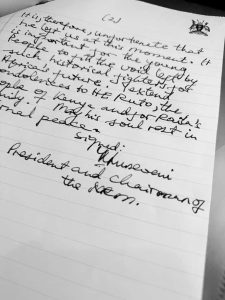 (2)
It is therefore, unfortunate that
he left us at this moment. It
is important for the young
People to fill the void left by
such historical fighters for
Kenya's future. I extend
condolences to H.E Ruto, the
People of Kenya and for Raila's
family. May his soul rest in
eternal peace.
Signed:
Museveni
President and chairman of
the